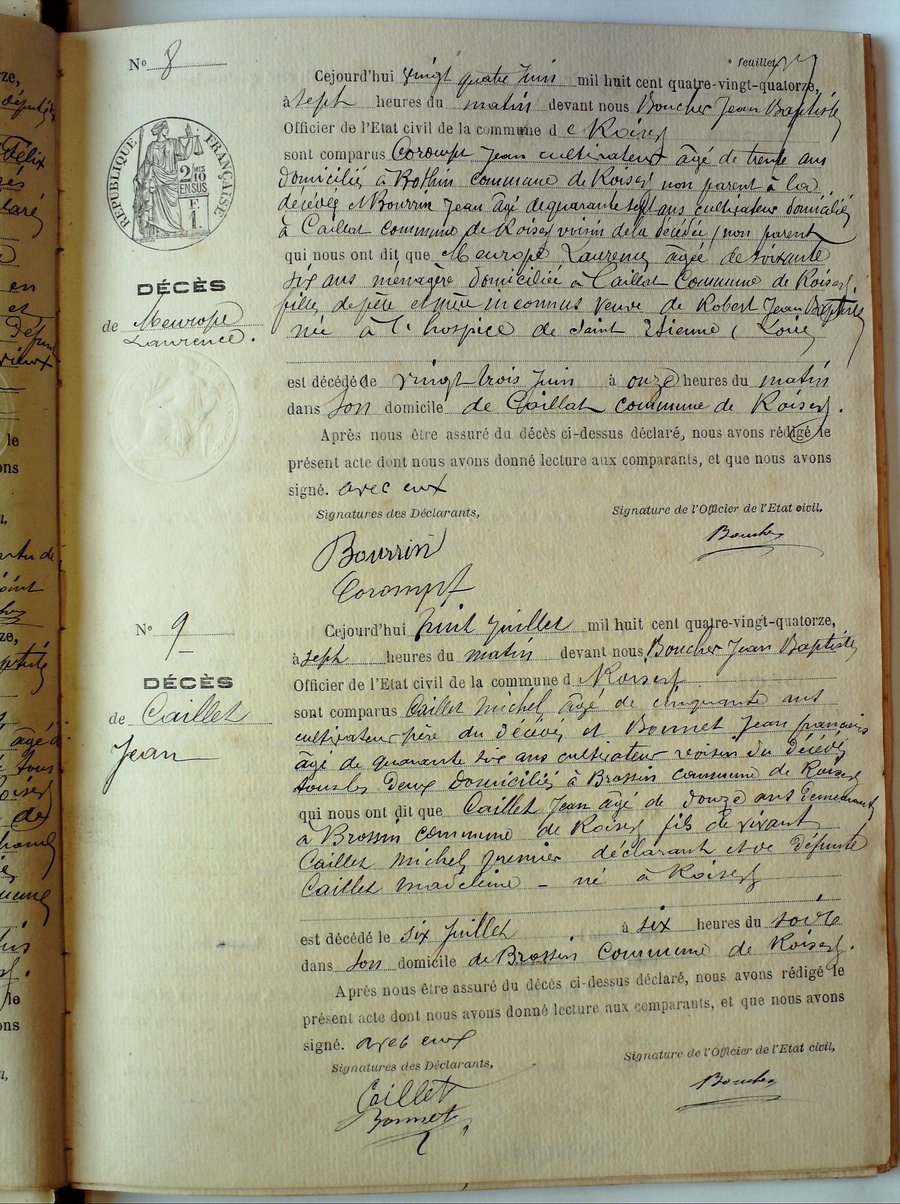 N° 8
feuillet
Cejourd'hui vingt quatre Juin mil huit cent quatre-vingt-quatorze,
à Seph heures du matin devant nous Boucher Jean Baptiste
Officier de l'Etat civil de la commune de Roisey
sont comparus Corompt Jean cultivateur âgé de trente ans
domicilié à Bothin commune de Roisey non parent à la
décédée et Bourrin Jean âgé de quarante sept ans cultivateur domicilié
à Caillat commune de Roisey voisin de la décédée, non parent
qui nous ont dit que Meurope Laurence âgée de soixante
six ans ménagère domiciliée à Caillat Commune de Roisey
fille de père et mère inconnus veuve de Robert Jean Baptiste
née à l'hospice de Saint Etienne, Loire
RÉPUBLIQUE FRANÇAISE
2/10 EN SUS
F. 1
DÉCÈS
de Meurope
Laurence.
est décédé de vingt trois Juin à onze heures du matin
dans Son domicile de Caillat commune de Roisey.
Après nous être assuré du décès ci-dessus déclaré, nous avons rédigé le
présent acte dont nous avons donné lecture aux comparants, et que nous avons
signé. avec eux
Signatures des Déclarants, Signature de l'Officier de l'Etat civil,
Bourrin Boucher
Corompt
N° 9
Cejourd'hui huit Juillet mil huit cent quatre-vingt-quatorze,
à seph heures du matin devant nous Boucher Jean Baptiste
Officier de l'Etat civil de la commune d Roisey
DÉCÈS
de Caillet
Jean
sont comparus Caillet Michel âgé de cinquante ans
cultivateur père du décédé et Bonnet Jean françois
âgé de quarante six ans cultivateur voisin du décédé
tous les deux domiciliés à Brossin commune de Roisey
qui nous ont dit que Caillet Jean âgé de douze ans demeurant
à Brossin commune de Roisey fils de vivant
Caillet Michel premier déclarant et de défunte
Caillet Madeleine - né à Roisey
est décédé le six Juillet à six heures du soir
dans son domicile de Brossin commune de Roisey.
Après nous être assuré du décès ci-dessus déclaré, nous avons rédigé le
présent acte dont nous avons donné lecture aux comparants, et que nous avons
signé. avec eux
Signatures des Déclarants, Signature de l'Officier de l'Etat civil,
Caillet Boucher
Bonnet